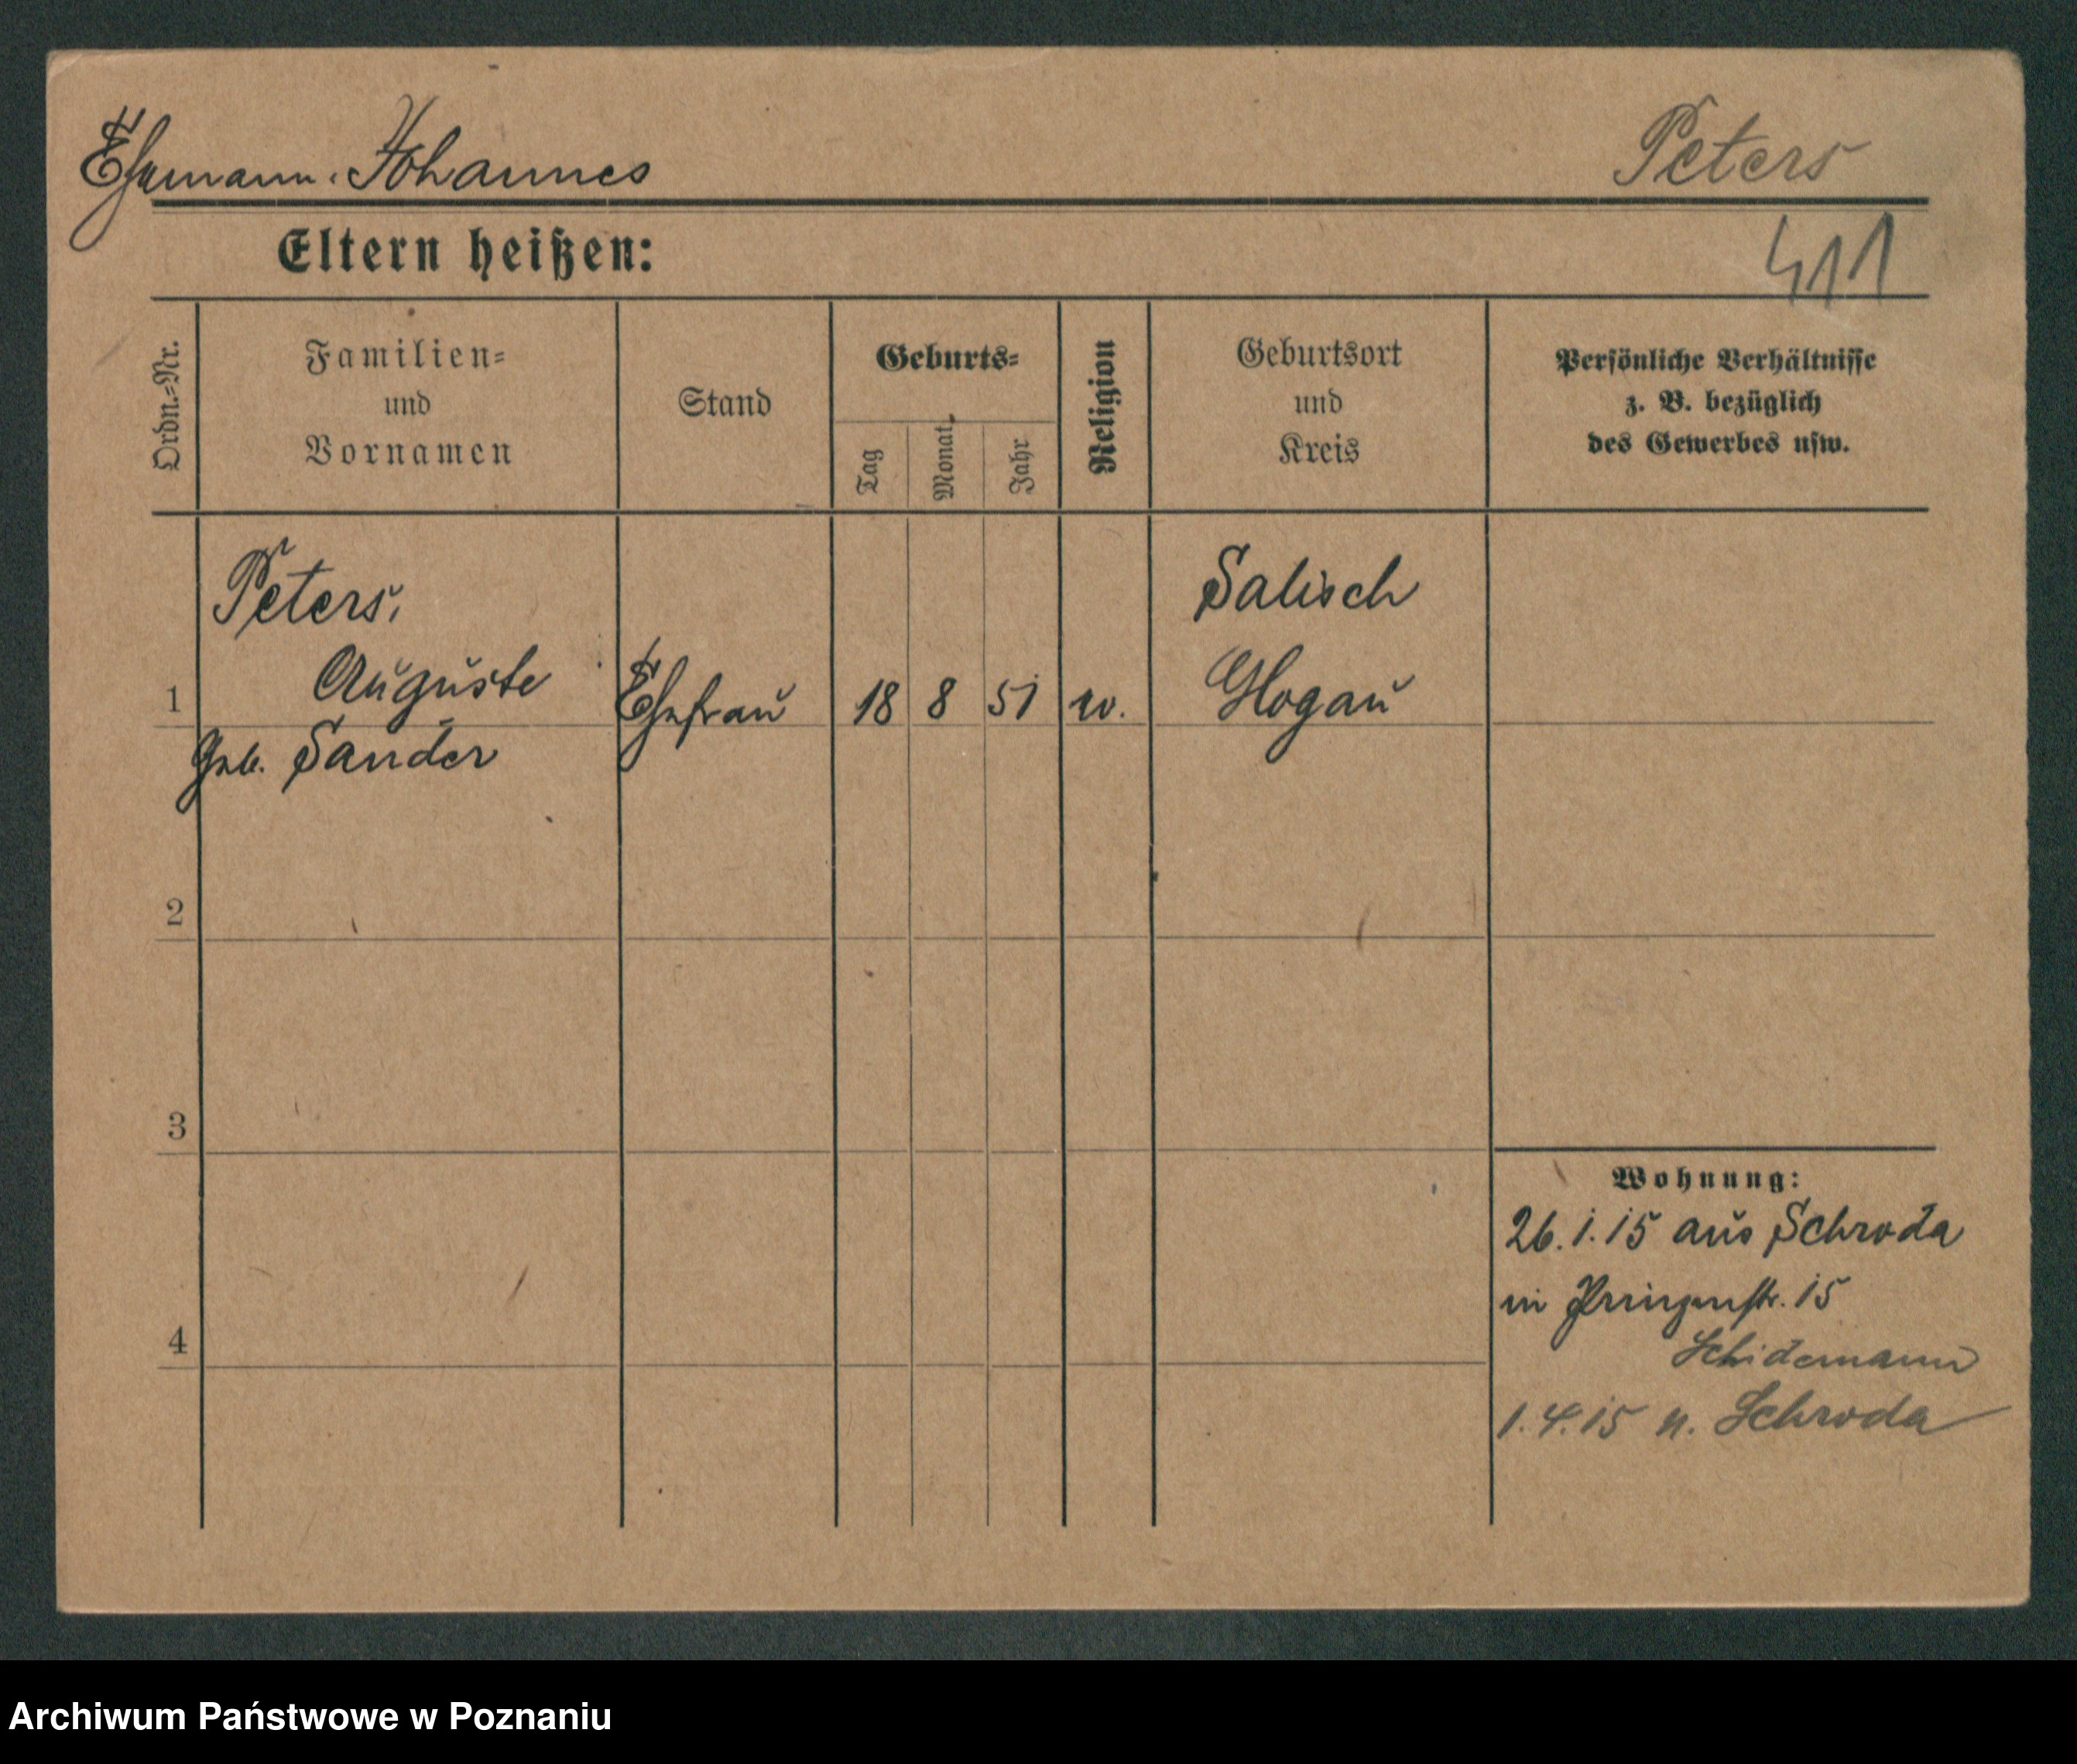 Ehemann. Johannes Peters
Eltern heißen: 411
Ordn.=Nr.
Familien=
und
Vornamen
Stand
Geburts=
Tag
Monat
Jahr
Religion
Geburtsort
und
Kreis
Persönliche Verhältnisse
z. B. bezüglich
des Gewerbes usw.
Peters, Salisch
1 Auguste Ehefrau 18 8 51 ev. Glogau
geb. Sander
2
3
Wohnung:
26.1.15 aus Schroda
in Prinzenstr. 15
4
Schidemann
1.4.15 n. Schroda
Archiwum Państwowe w Poznaniu